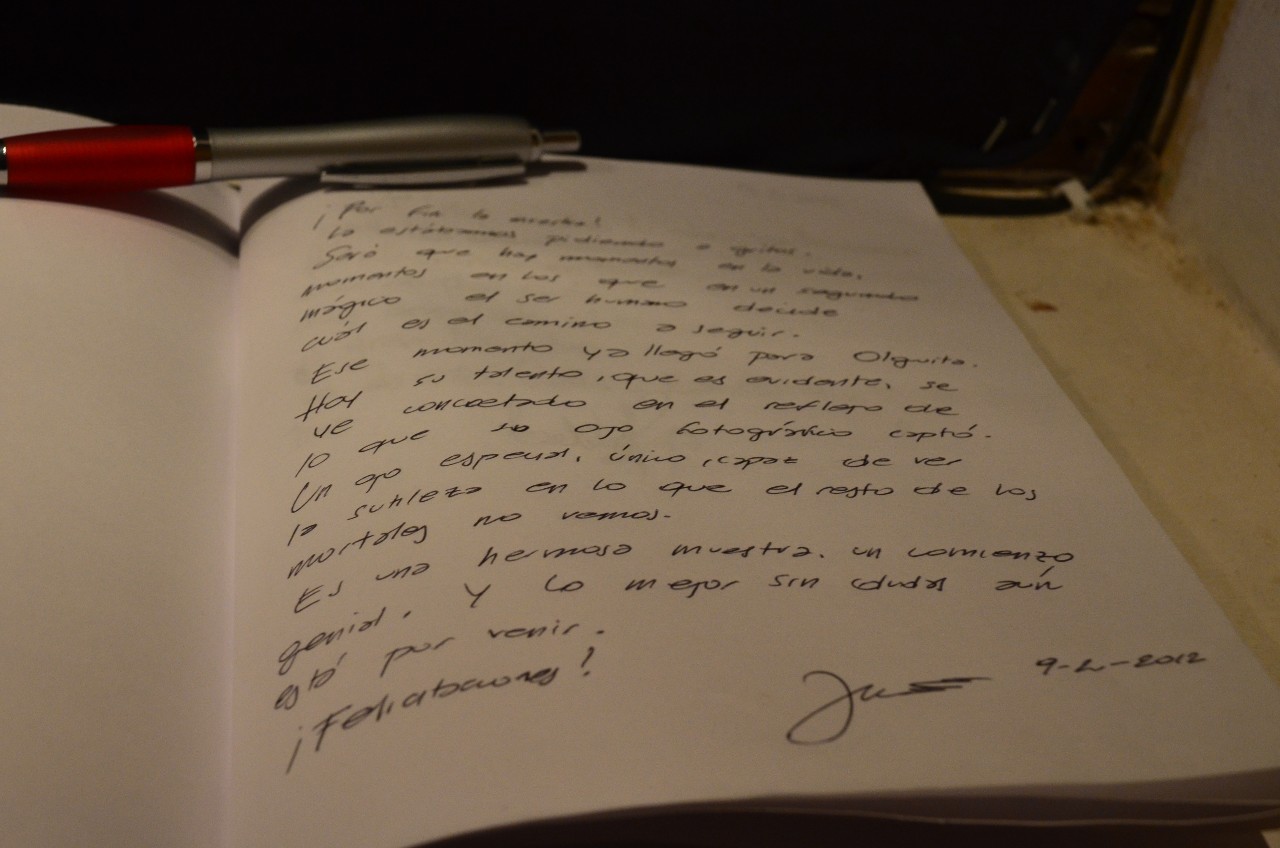 ¡Por fin la muestra!
La estábamos pidiendo a gritos.
Será que hay momentos en la vida,
momentos en los que en un segundo
mágico el ser humano decide
cuál es el camino a seguir.
Ese momento ya llegó para Olguita.
Hoy su talento, que es evidente, se
ve concretado en el reflejo de
lo que su ojo fotográfico captó.
Un ojo especial, único, capaz de ver
la sutileza en lo que el resto de los
mortales no vemos.
Es una hermosa muestra. un comienzo
genial, y lo mejor sin dudas aún
está por venir.
¡Felicitaciones!
9-2-2012